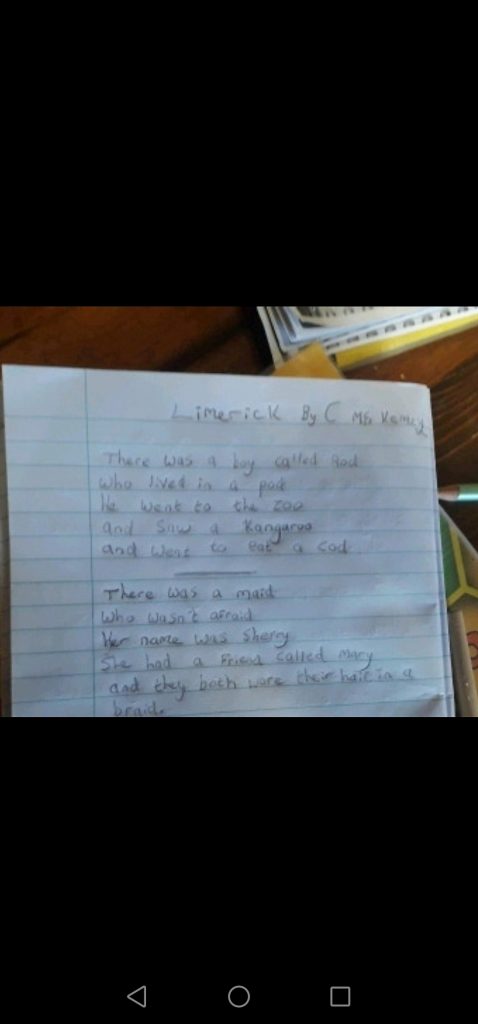 Limerick By C
There was a boy called
who lived in a pod
He went to the zoo
and saw a Kangaroo
and went to eat a cod.
There was a maid
Who wasn't afraid
Her name was Sherry
She had a Friend called mary
and they both wore their hair in a
braid.